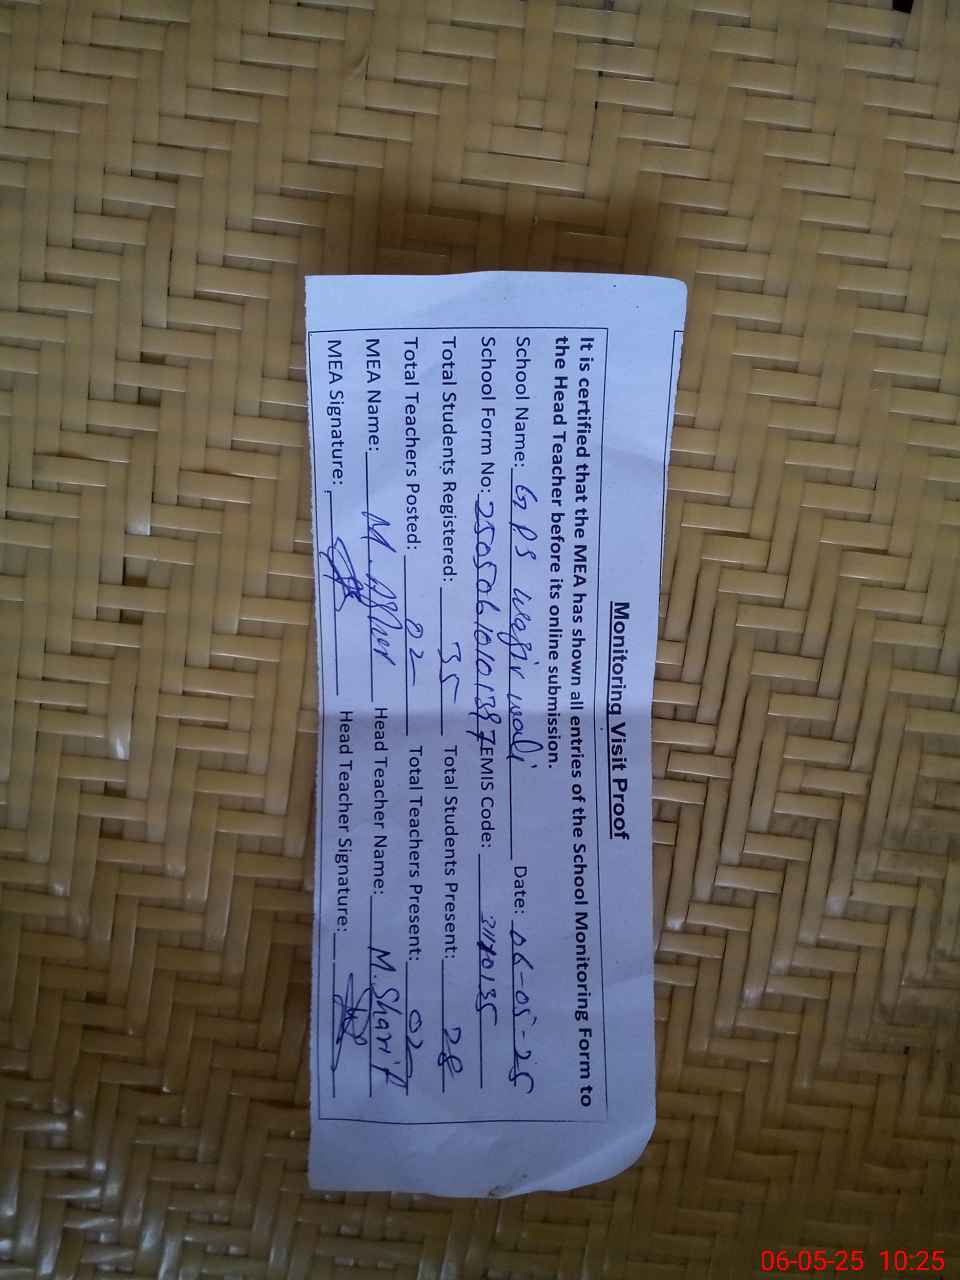 Monitoring Visit Proof
It is certified that the MEA has shown all entries of the School Monitoring Form to
the Head Teacher before its online submission.
School Name: GPS wazir wali Date: 06-05-25
School Form No: EMIS Code:
Total Students Registered: 35 Total Students Present: 28
Total Teachers Posted: 02 Total Teachers Present: 02
MEA Name: M. Head Teacher Name: M. Sharif
MEA Signature: Head Teacher Signature:
06-05-25 10:25